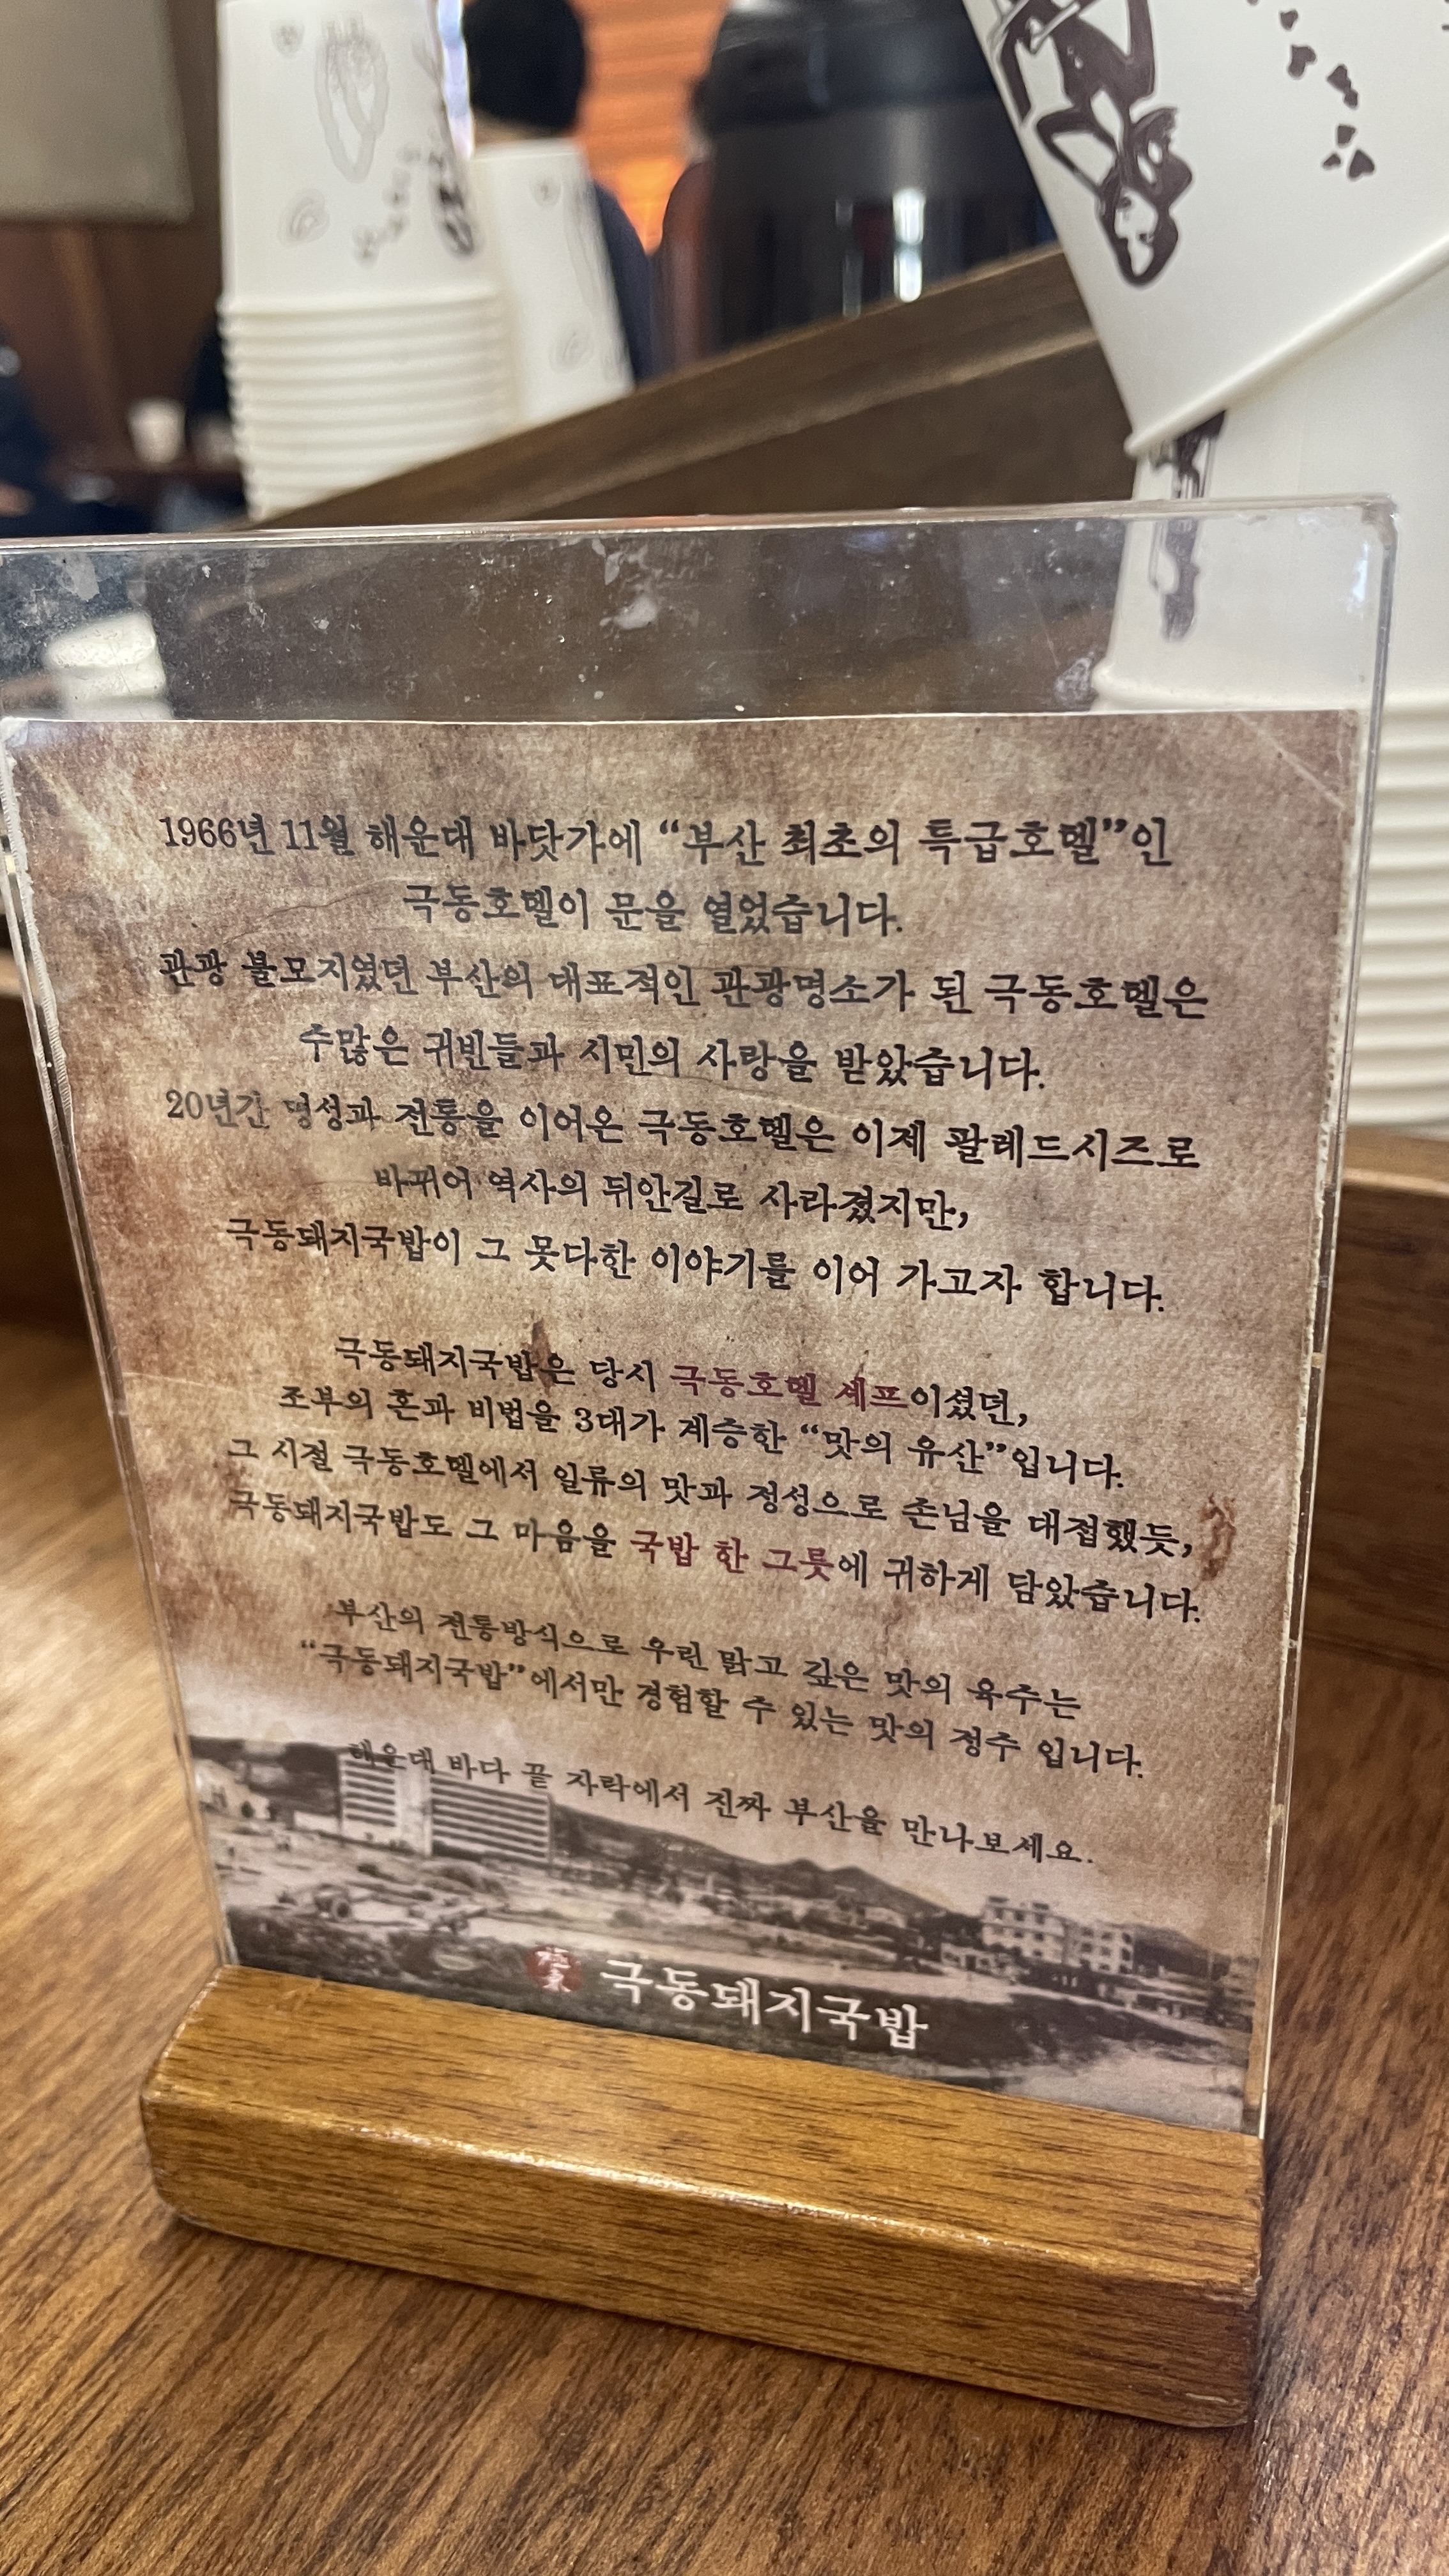 1966년 11월 해운대 바닷가에 “부산 최초의 특급호텔”인
극동호텔이 문을 열었습니다.
관광 불모지였던 부산의 대표적인 관광명소가 된 극동호텔은
수많은 귀빈들과 시민의 사랑을 받았습니다.
20년간 명성과 전통을 이어온 극동호텔은 이제 팔레드시즈로
바뀌어 역사의 뒤안길로 사라졌지만,
극동돼지국밥이 그 못다한 이야기를 이어 가고자 합니다.
극동돼지국밥은 당시 극동호텔 셰프이셨던,
조부의 혼과 비법을 3대가 계승한 “맛의 유산”입니다.
그 시절 극동호텔에서 일류의 맛과 정성으로 손님을 대접했듯,
극동돼지국밥도 그 마음을 국밥 한 그릇에 귀하게 담았습니다.
부산의 전통방식으로 우린 맑고 깊은 맛의 육수는
“극동돼지국밥”에서만 경험할 수 있는 맛의 정수 입니다.
해운대 바다 끝 자락에서 진짜 부산을 만나보세요.
極東 극동돼지국밥